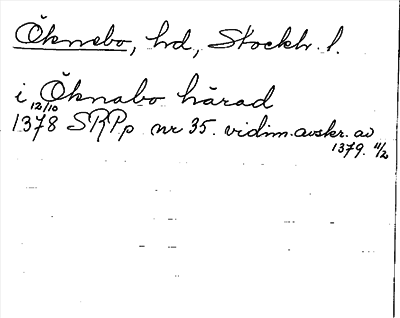 Öknebo, hd, Stockh. l.
i Öknabo härad
12/10
1378 SRPp nr 35. vidim. avskr. av
1379. 11/2